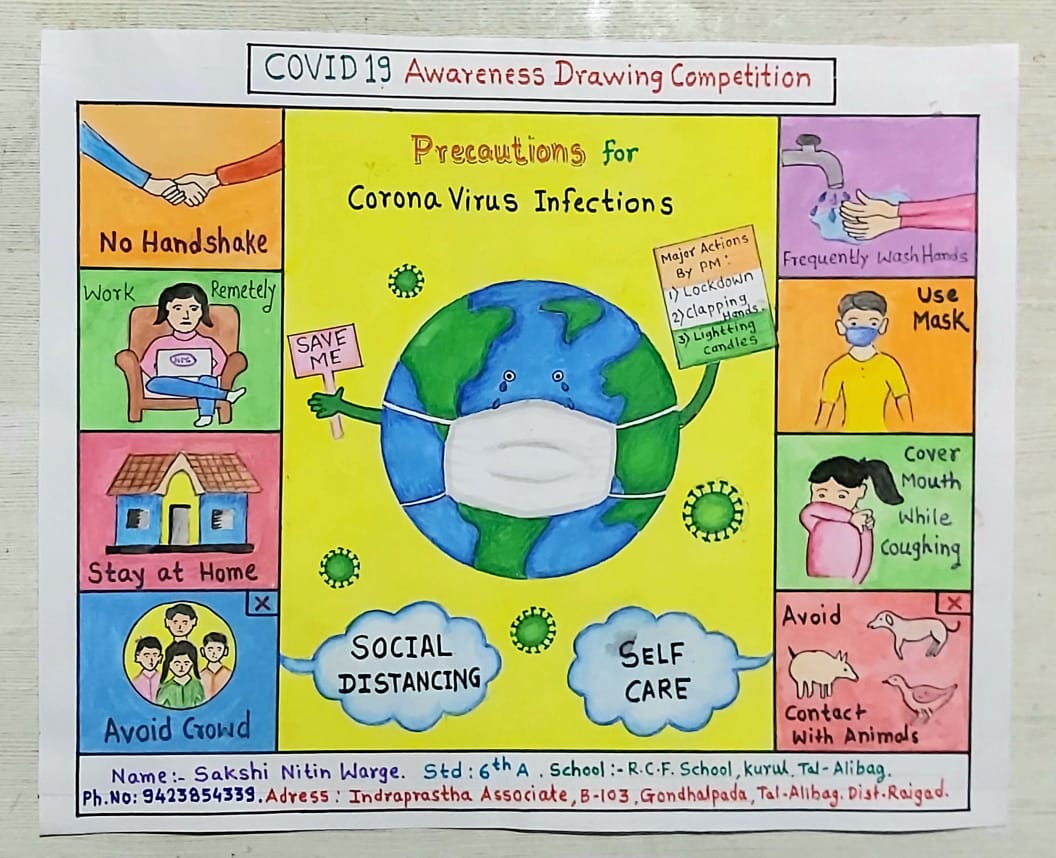 COVID 19 Awareness Drawing Competition
Precautions for
Corona Virus Infections
No Handshake
Work Remetely
Stay at Home
X
Avoid Crowd
SAVE
ME
Major Actions
By PM:
1) Lockdown
2) Clapping
Hands.
3) Lightting
candles
SOCIAL
DISTANCING
SELF
CARE
Frequently Wash Hands
Use
Mask
Cover
Mouth
While
Coughing
X
Avoid
Contact
With Animals
Name:- Sakshi Nitin Warge. Std : 6th A . School :- R.C.F. School, Kurul, Tal- Alibag.
Ph.No: 9423854339. Adress : Indraprastha Associate, B-103, Gondhalpada, Tal-Alibag. Dist-Raigad.